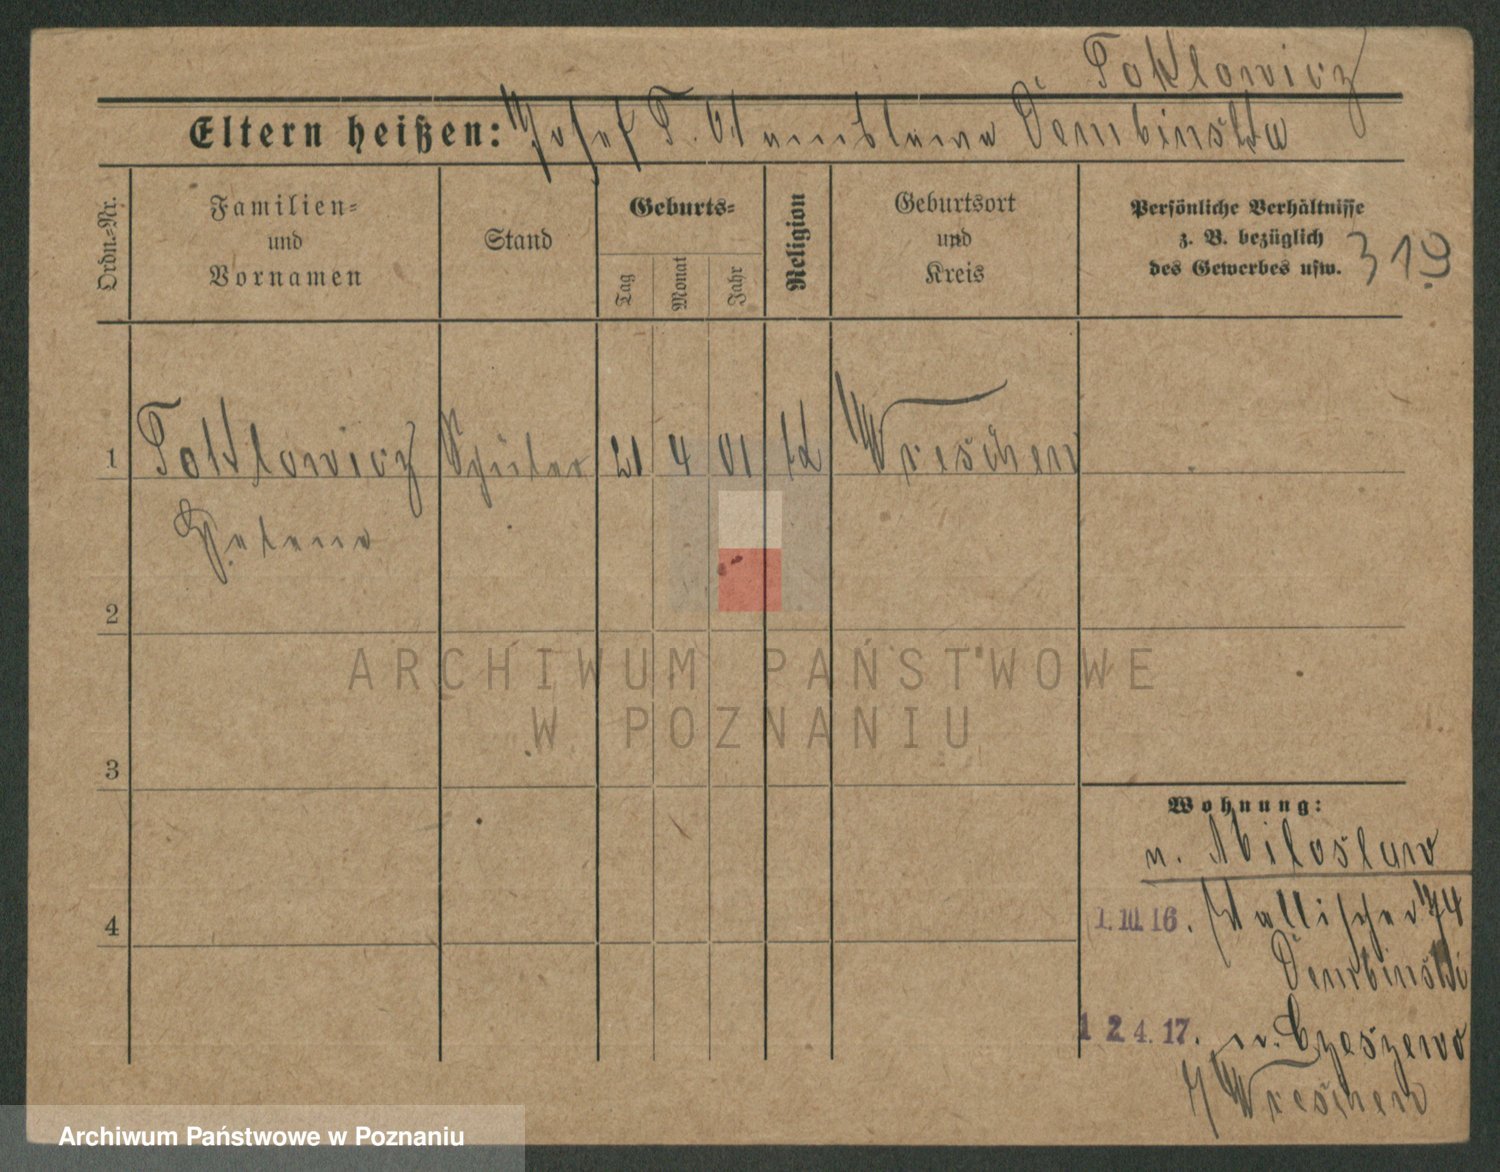 Toklowicz
Eltern heißen: Josef T. Stanislawa Dembinska
Ordn.-Nr.
Familien-
und
Vornamen
Stand
Geburts-
Tag
Monat
Jahr
Religion
Geburtsort
und
Kreis
Persönliche Verhältnisse
z. B. bezüglich
des Gewerbes usw.
319
1 Toklowicz Schüler 21 4 01 k Wreschen
Helene
2
3
4
ARCHIWUM PAŃSTWOWE
W POZNANIU
Wohnung:
n. Miloslaw
1.10.16. Wallischei 74
Dembinski
12.4.17. n. Czeszewo
Wreschen
Archiwum Państwowe w Poznaniu